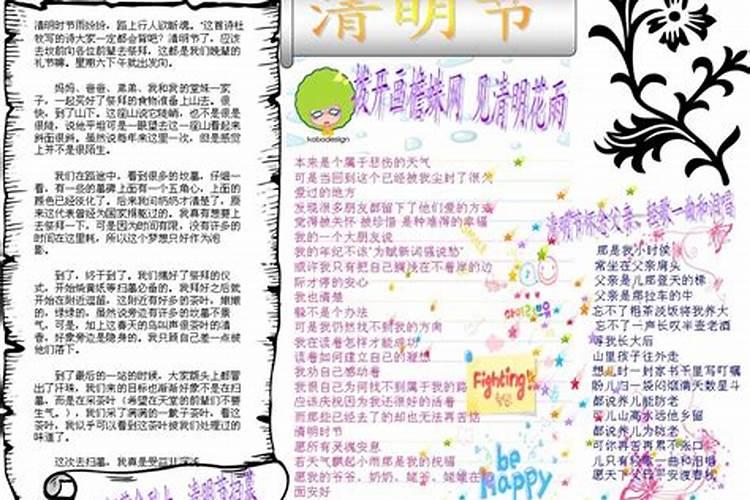 清明时节雨纷纷，路上行人欲断魂。"这首诗杜
牧写的诗大家一定都会背吧？清明节了，应该
去坟前向各位前辈去祭拜，这都是我们晚辈的
礼节嘛。星期六下午就出发向。
妈妈、爸爸、弟弟、我和我的堂妹一家
子，一起买好了祭拜的食物准备上山去。很
快，到了山下。这座山说它陡峭，也不是很是
很陡，说他平坦可是一眼望去这一座山看起来
斜面很斜。虽然说每年来这里一次，但是感觉
上并不是很陌生。
我们在路途中，看到很多的坟墓，仔细一
看，有一些的墓碑上面有一个五角心，上面的
颜色已经淡化了。后来我问奶奶才清楚了，原
来这代表曾经为国家捐躯过的。我真有想要上
去祭拜一下，可是因为时间有限，没有许多的
时间在这里耗，所以这个梦想只好作为泡
影。
到了，终于到了，我们摆好了祭拜的仪
式，开始烧黄纸等扫墓必备的，我拜好之后就
开始在附近逗留。这附近有好多的茶叶，嫩嫩
的，绿绿的。虽然说旁边有许多的坟墓不景
气，可是，加上这春天的鸟叫声很茶叶的清
香，好象旁边是隐身的，我只顾自己差一点被
他们落下。
到了最后的一站的时候，大家额头上都冒
出了汗味，我们来的目标也渐渐好象不是在扫
墓，而是在采茶叶（希望在天堂的前辈们不要
生气。），我们采了满满的一篮子茶叶，看这
茶叶，我似乎可以看到这茶叶被我们处理过的
味道了。
这次去扫墓，我真是受益非浅
清明节扫墓
清明节
拨开画檐蛛网 见清明花雨
kabodesign
本来是个属于悲伤的天气
可是当回到这个已经被我尘封了很久
爱过的地方
发现很多朋友都留下了他们爱的方
觉得被关怀 被珍惜 是种难得的幸福
我的一个大朋友说
我的年纪不该"为赋新词强说愁"
或许我只有把自己搁浅在不着岸的边
际才停的安心
我也清楚
躲不是个办法
可是我仍然找不到我的方向
我在读着怎样才能成功
读着如何建立自己的
我劝自己感动着
我恨自己为何找不到属于我的路
应该庆祝因为我还很好的活着
而那些已经去了的却也无法再苦恼
清明时节
愿所有灵魂安息
若天气飘起小雨那是我的祝福
愿我的爷爷、奶奶、姥爷、姥姥在
面安好
Fighting!
be
Happy
清明节怀念父亲，轻歌一曲和泪唱
那是我小时候
常坐在父亲肩头
父亲是儿那登天的梯
父亲是那拉车的牛
忘不了粗茶淡饭将我养大
忘不了一声长叹半壶老酒
等我长大后
山里孩子往外走
想儿时一封家书千里写叮嘱
盼儿归一袋闷烟满天数星斗
都说养儿能防老
可儿山高水远他乡留
都说养儿为防老
可你再苦再累不张口
儿只有轻歌一曲和泪唱
愿天下父母平安度春秋